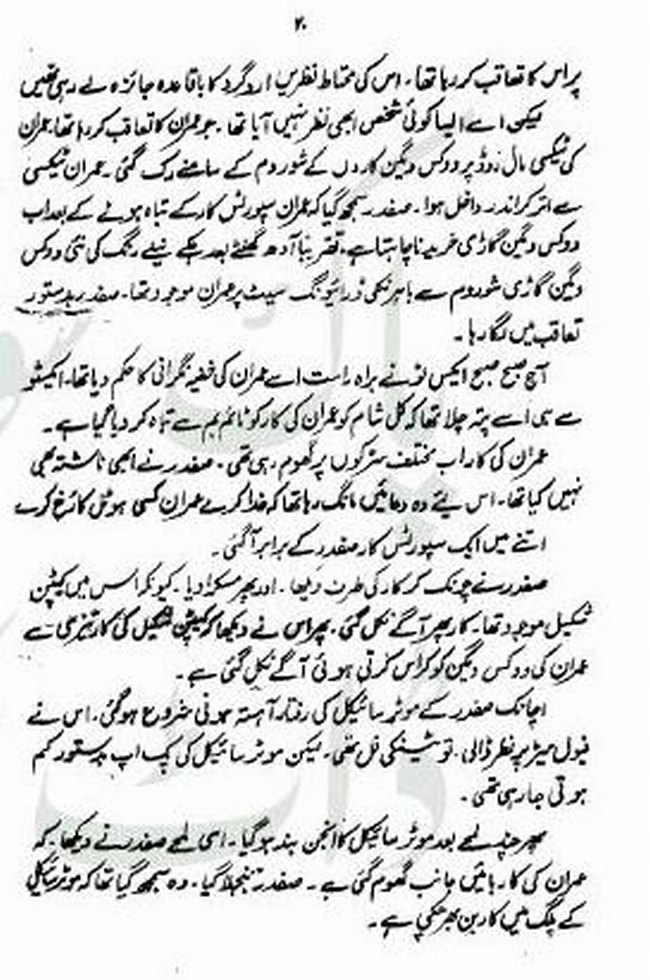 ۲۰
پر اس کا تعاقب کر رہا تھا۔ اس کی محتاط نظریں ارد گرد کا باقاعدہ جائزہ لے رہی تھیں
لیکن اسے ایسا کوئی شخص ابھی نظر نہیں آیا تھا۔ جو عمران کا تعاقب کر رہا تھا عمران
کی ٹیکسی مال روڈ پر ووکس ویگن کاروں کے شوروم کے سامنے رک گئی۔ عمران ٹیکسی
سے اتر کر اندر داخل ہوا۔ صفدر سمجھ گیا کہ عمران سپورٹس کار کے تباہ ہونے کے بعد اب
ووکس ویگن گاڑی خریدنا چاہتا ہے۔ تقریباً آدھ گھنٹے بعد ہلکے نیلے رنگ کی نئی ووکس
ویگن گاڑی شوروم سے باہر نکلی ڈرائیونگ سیٹ پر عمران موجود تھا۔ صفدر بدستور
تعاقب میں لگا رہا۔
آج صبح صبح ایکس ٹو نے براہ راست اسے عمران کی خفیہ نگرانی کا حکم دیا تھا۔ ایکسٹو
سے ہی اسے پتہ چلا تھا کہ کل شام کو عمران کی کار کو ٹائم بم سے تباہ کر دیا گیا ہے۔
عمران کی کار اب مختلف سڑکوں پر گھوم رہی تھی۔ صفدر نے ابھی ناشتہ بھی
نہیں کیا تھا۔ اس لیئے وہ دعائیں مانگ رہا تھا کہ خدا کرے عمران کسی ہوٹل کا رخ کرے
اتنے میں ایک سپورٹس کار صفدر کے برابر آ گئی۔
صفدر نے چونک کر کار کی طرف دیکھا۔ اور پھر مسکرا دیا۔ کیونکہ اس میں کیپٹن
شکیل موجود تھا۔ کار پھر آگے نکل گئی۔ پھر اس نے دیکھا کہ کیپٹن شکیل کی کار تیزی سے
عمران کی ووکس ویگن کو کراس کرتی ہوئی آگے نکل گئی ہے۔
اچانک صفدر کے موٹر سائیکل کی رفتار آہستہ ہونی شروع ہو گئی۔ اس نے
فیول میٹر پر نظر ڈالی۔ تو ٹینکی فل تھی۔ لیکن موٹر سائیکل کی پک اپ بدستور کم
ہوتی جا رہی تھی۔
پھر چند لمحے بعد موٹر سائیکل کا انجن بند ہو گیا۔ اسی لمحے صفدر نے دیکھا۔ کہ
عمران کی کار بائیں جانب گھوم گئی ہے۔ صفدر جھنجھلا گیا۔ وہ سمجھ گیا تھا کہ موٹر سائیکل
کے پلگ میں کاربن بھر چکی ہے۔